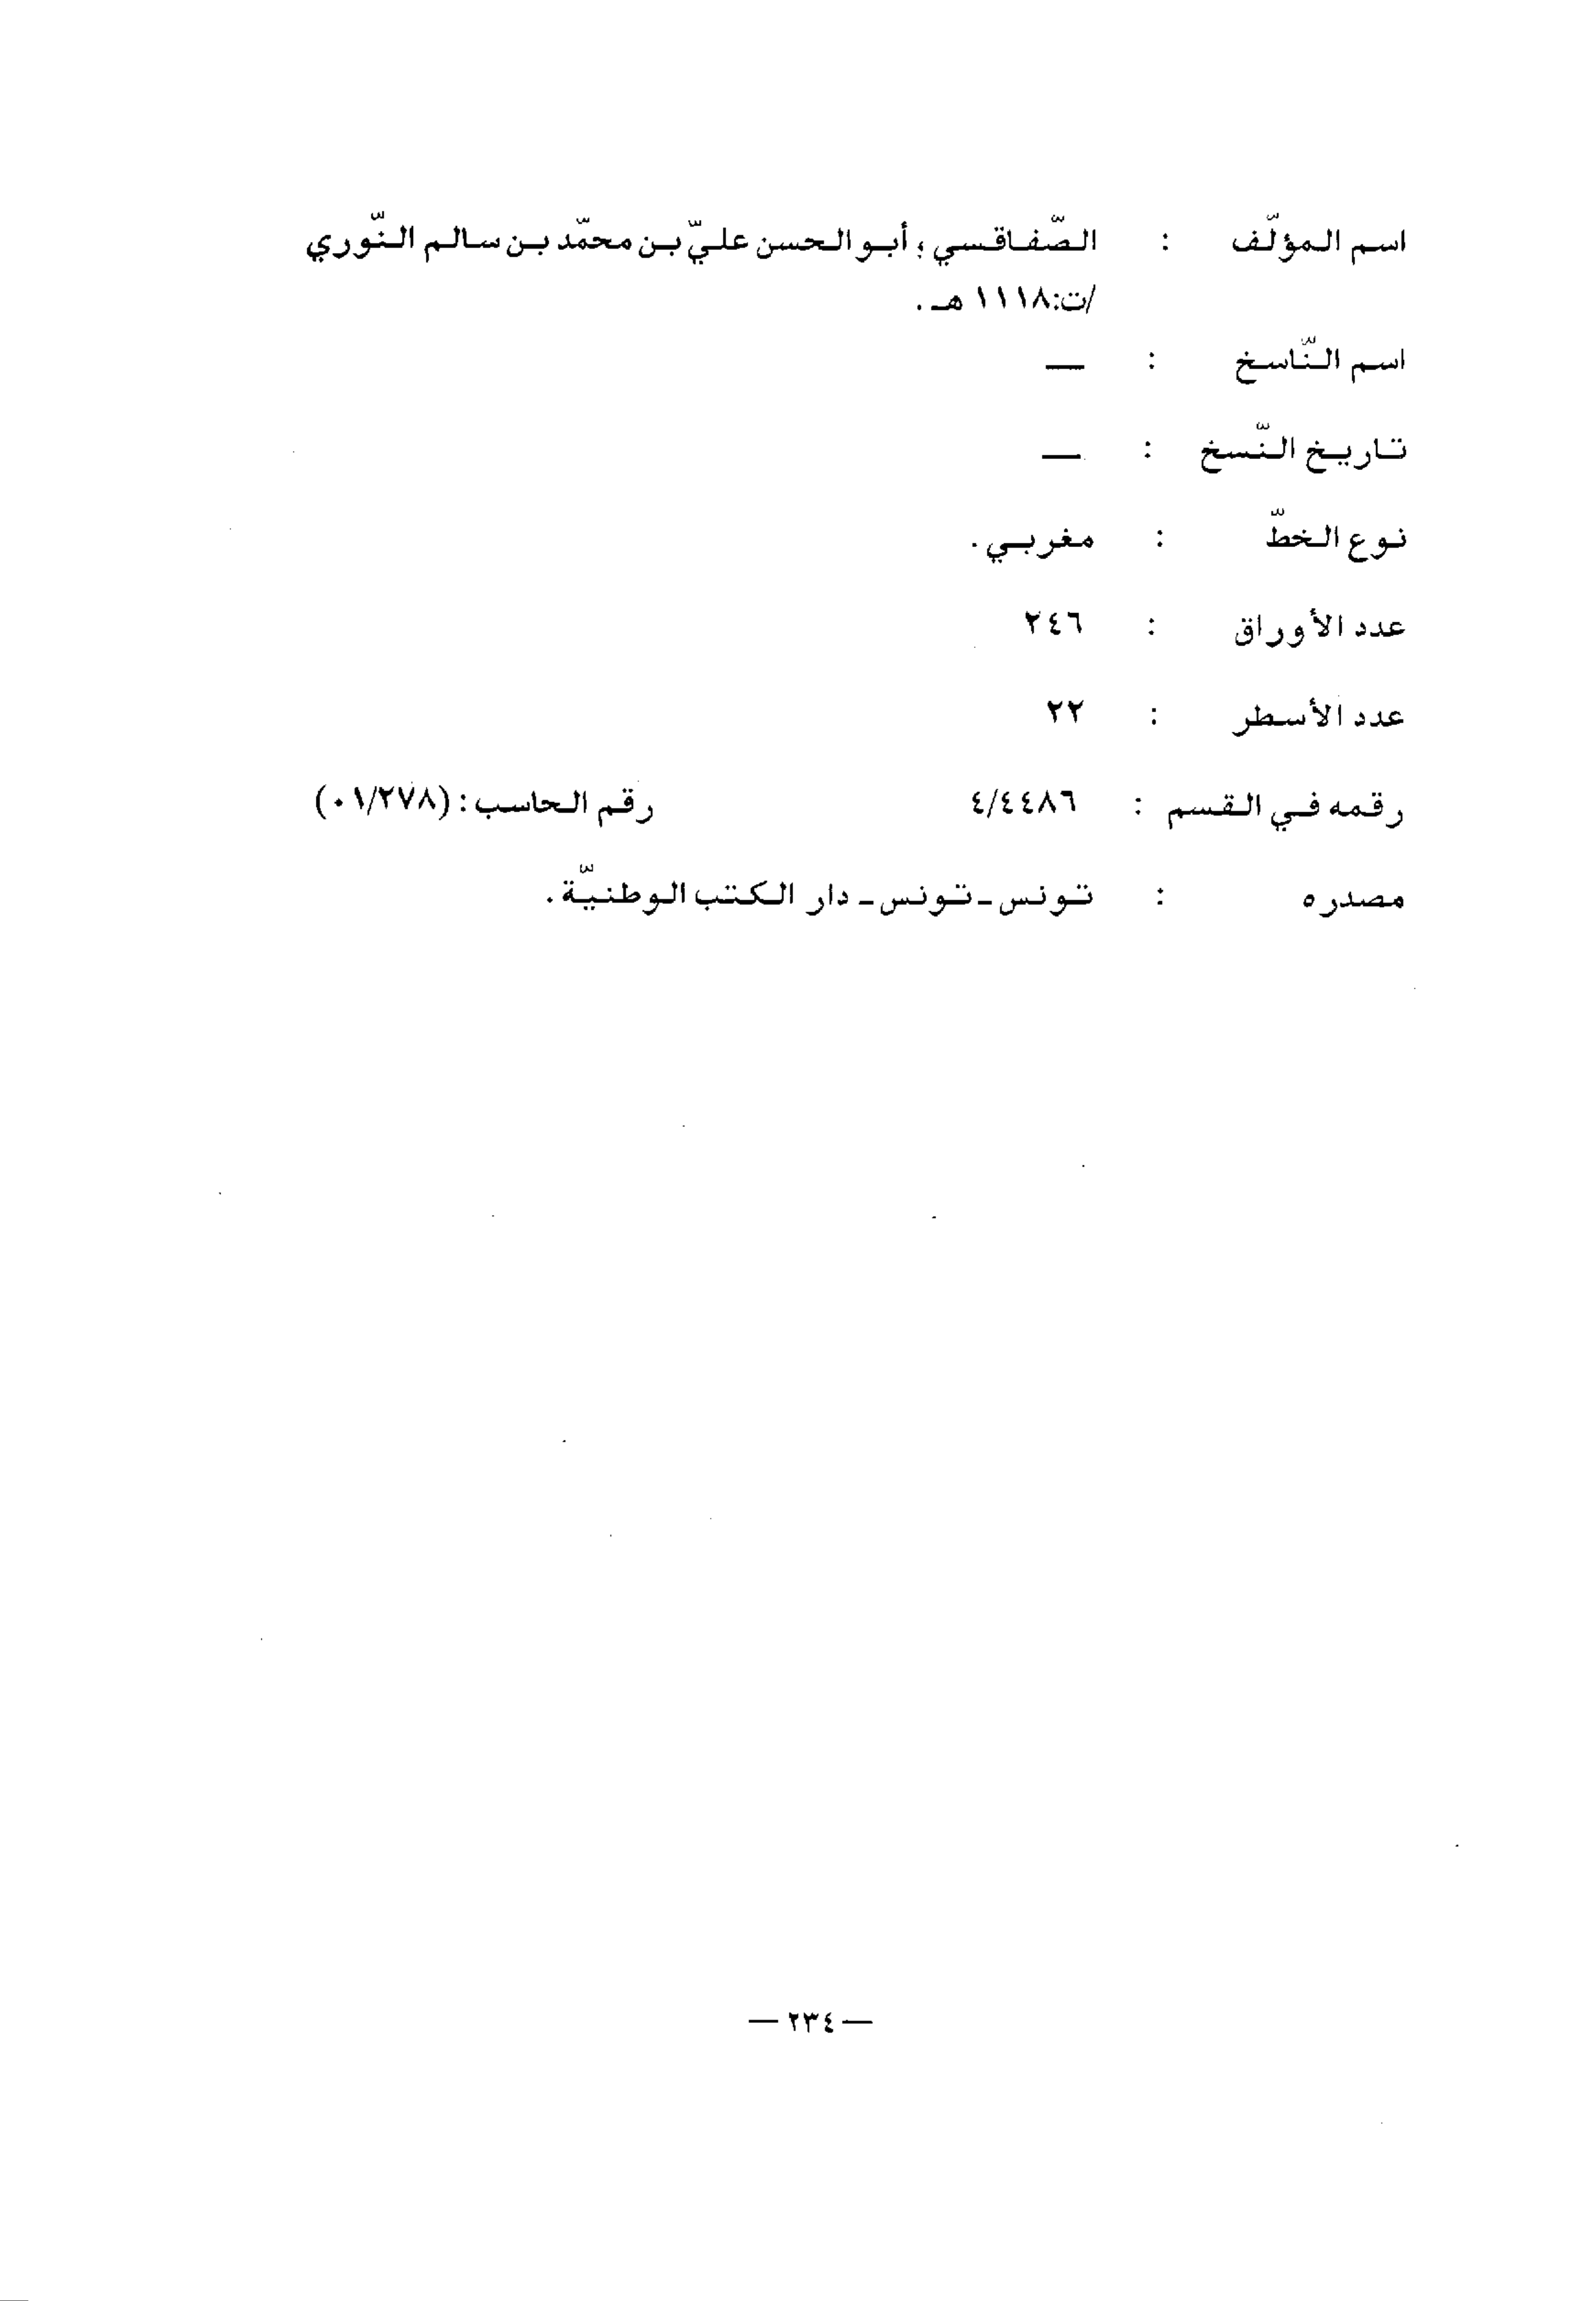 اسم المؤلّف : الصّفاقسي ؛ أبو الحسن عليّ بن محمّد بن سالم النّوري
/ت:١١١٨ هـ .
اسم النّاسخ : —
تاريخ النّسخ : —
نوع الخطّ : مغربي .
عدد الأوراق : ٢٤٦
عدد الأسطر : ٢٢
رقمه في القسم : ٤/٤٤٨٦ رقم الحاسب : (٠١/٢٧٨)
مصدره : تونس - تونس - دار الكتب الوطنيّة .
— ٢٣٤ —